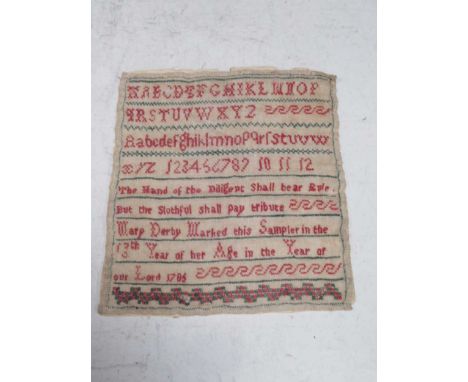 AABCDEFGHIKLMNOP
QRSTUVWXYZ
Aabcdefghiklmnopqrſstuvw
xyz 123456789 10 11 12
The Hand of the Diligent Shall bear Rule.
But the Slothful shall pay tribute
Mary Derby Marked this Sampler in the
13th Year of her Age in the Year of
our Lord 1786